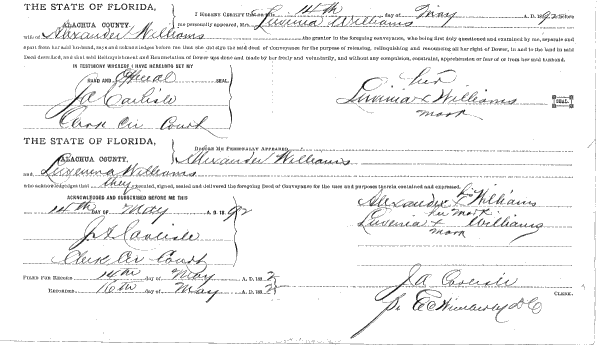 THE STATE OF FLORIDA,
ALACHUA COUNTY.
I HEREBY CERTIFY that on this 14th day of May A. D. 1892 before
me personally appeared, Mrs. Luvenia Williams
wife of Alexander Williams the grantor to the foregoing conveyance, who being first duly questioned and examined by me, separate and
apart from her said husband, says and acknowledges before me that she did sign the said deed of Conveyance for the purpose of releasing, relinquishing and renouncing all her right of Dower, in and to the land in said
Deed described, and that said Relinquishment and Renunciation of Dower was done and made by her freely and voluntarily, and without any compulsion, constraint, apprehension or fear of or from her said husband.
IN TESTIMONY WHEREOF, I HAVE HEREUNTO SET MY
HAND AND Official SEAL.
J A Carlisle
Clerk Cir Court
her
Luvinia x Williams
mark
SEAL.
THE STATE OF FLORIDA,
ALACHUA COUNTY.
BEFORE ME PERSONALLY APPEARED Alexander Williams
and Luvenina Williams
who acknowledged that they executed, signed, sealed and delivered the foregoing Deed of Conveyance for the uses and purposes therein contained and expressed.
ACKNOWLEDGED AND SUBSCRIBED BEFORE ME THIS
14th DAY OF May A. D. 1892
J. A. Carlisle
Clerk Cir Court
Alexander x Williams
her mark
Luvenia x Williams
mark
FILED FOR RECORD 14th day of May A. D. 1892
RECORDED 16th day of May A. D. 1892
J A Carlisle
CLERK.
pr E C Wimberly D C